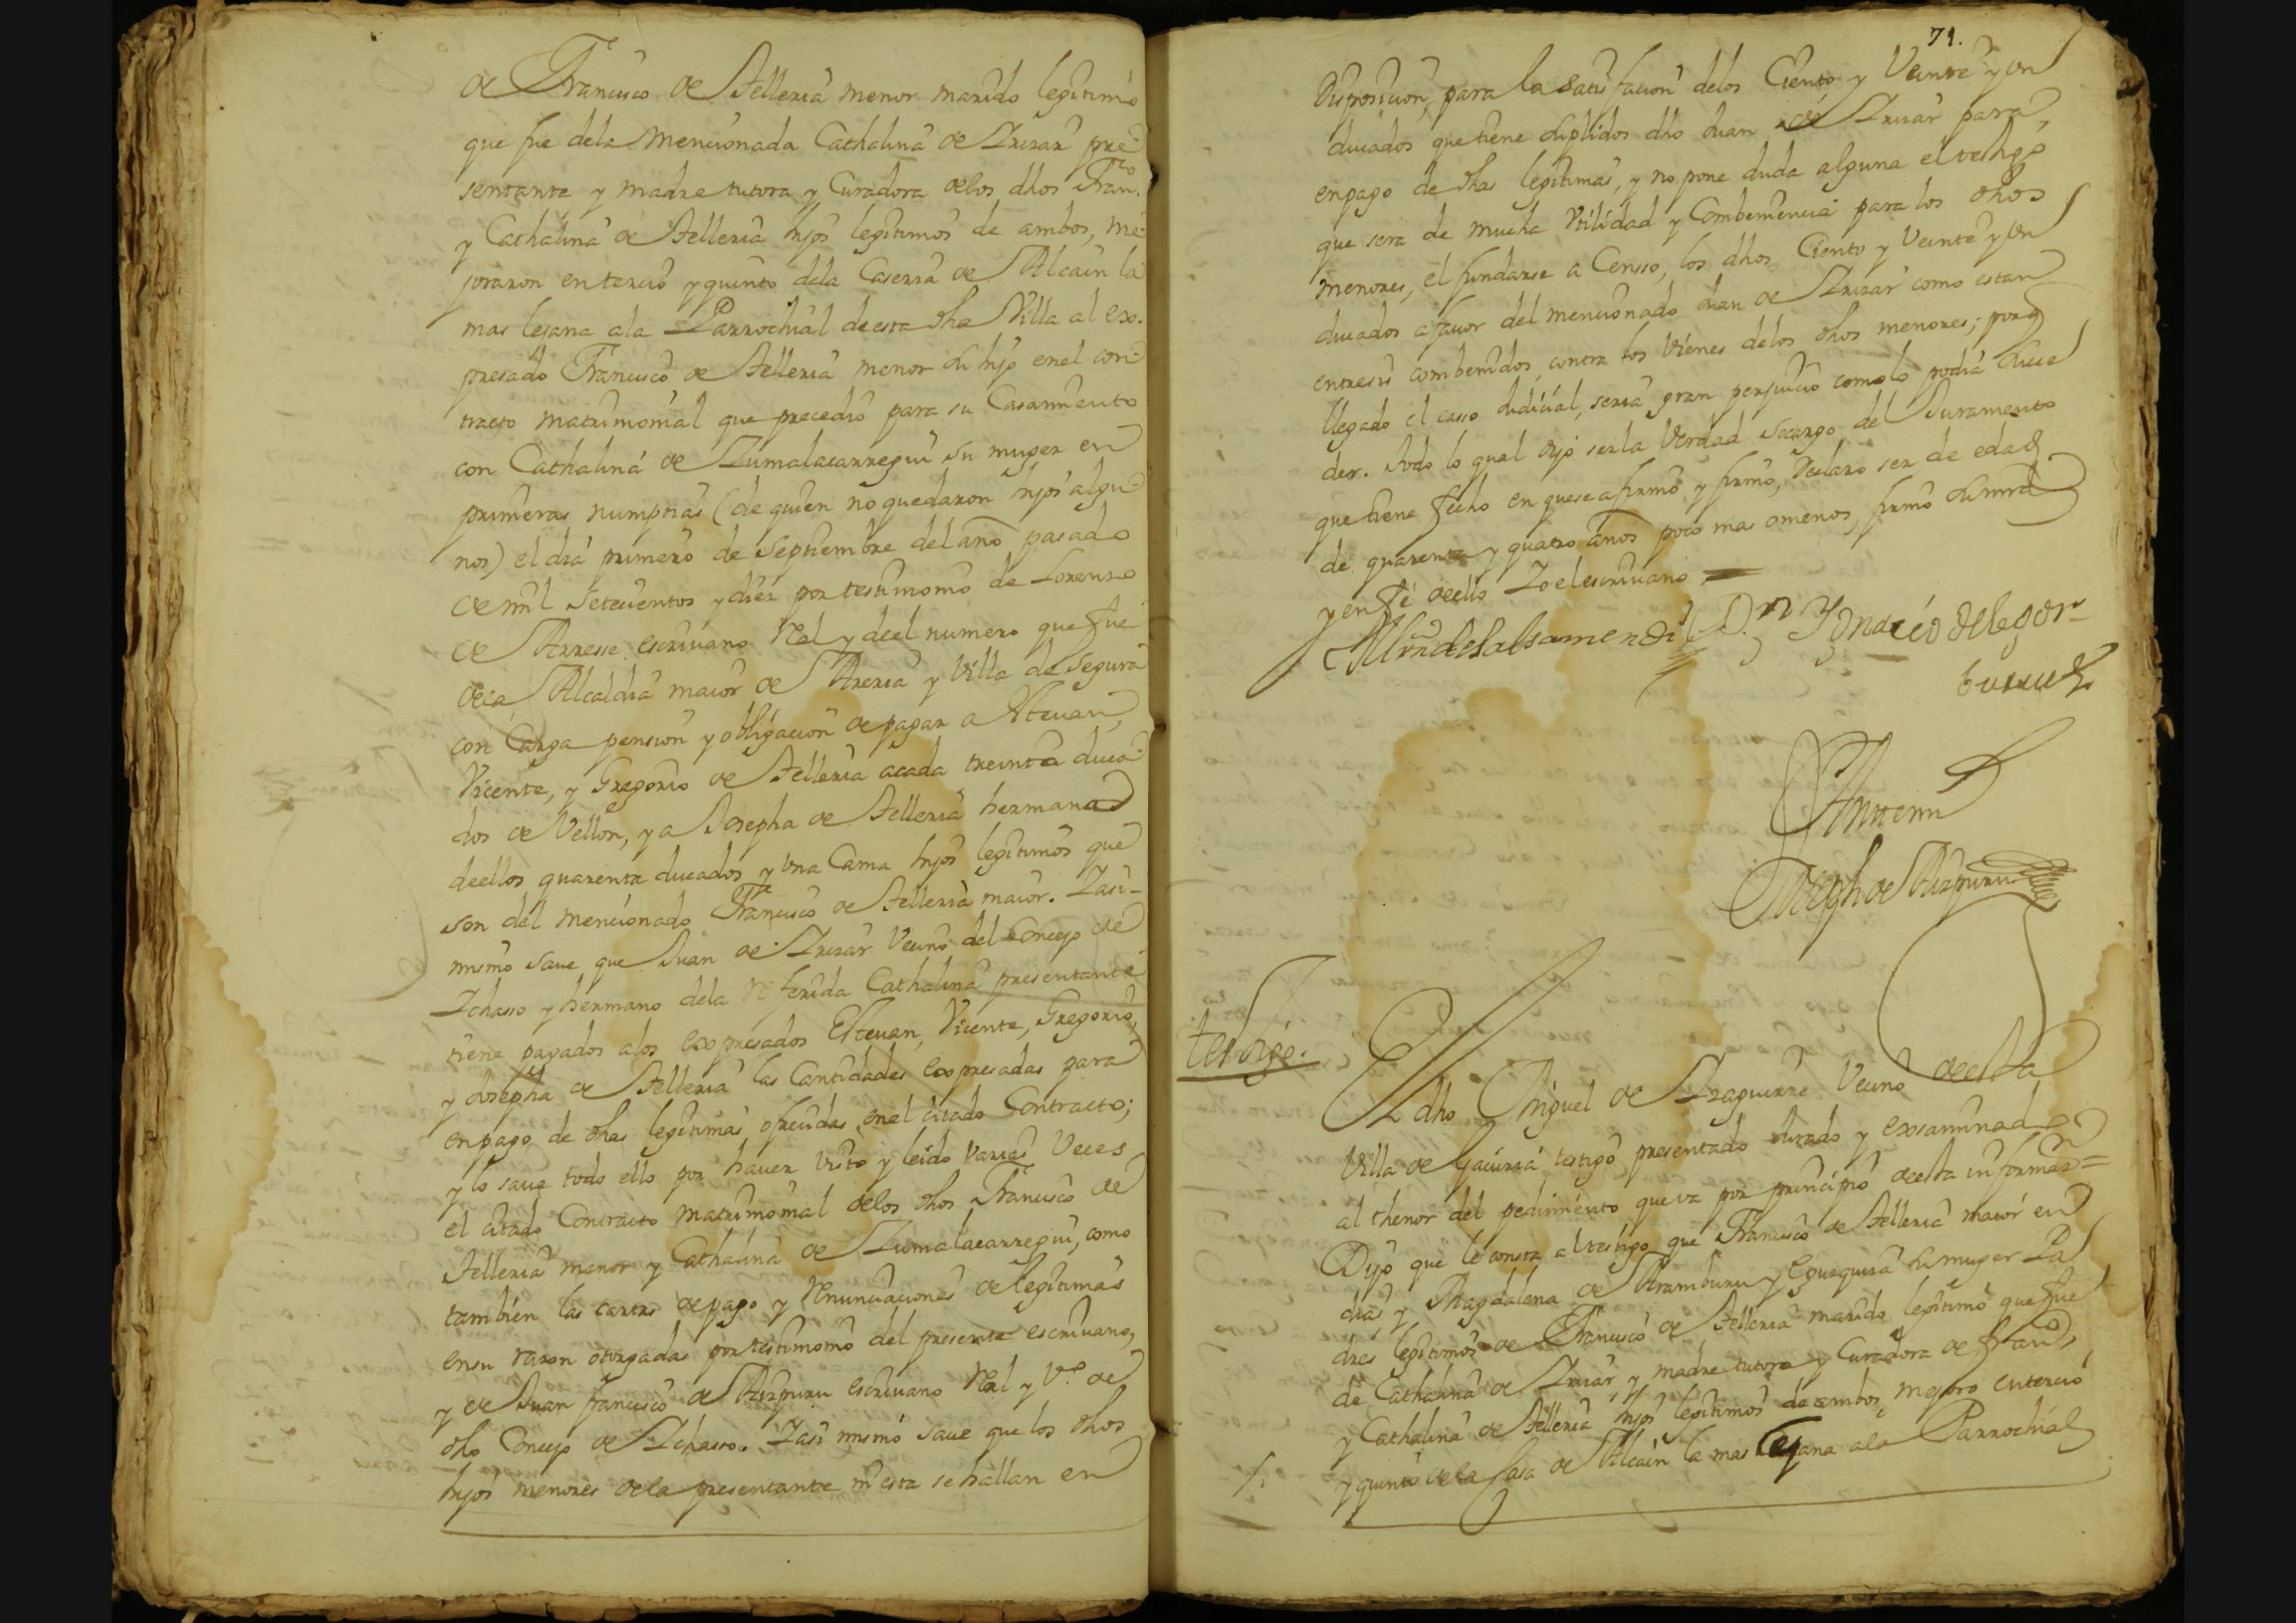 de Francisco de Telleria menor marido legitimo
que fue dela mencionada Cathalina de Irizar pre-
sentante y madre tutora y Curadora delos dhos Franco.
y Cathalina de Telleria hijos legitimos de ambos, me-
joraron en tercio y quinto dela Caseria de Alcain la
mas lejana ala Parrochial de esta dha Villa al ex-
presado Francisco de Telleria menor su hijo en el con-
tracto matrimonial que precedio para su Casamiento
con Cathalina de Zumalacarregui su muger en
primeras numptias (de quien no quedaron hijos algu-
nos) el dia primero de Septiembre del año pasado
de mil Setecientos y diez por testimonio de Lorenzo
de Arresse escriuano Real y de el numero que fue
dela Alcaldia maior de Areria y Villa de Segura
con Carga pension y obligacion de pagar a Esteuan,
Vicente, y Gregorio de Telleria a cada treinta duca-
dos de Vellon, y a Josepha de Telleria hermana
de ellos quarenta ducados y vna Cama hijos legitimos que
son del mencionado Francisco de Telleria maior. Y asi-
mismo saue que Juan de Irizar Vecino del Concejo de
Ichasso y hermano dela referida Cathalina presentante
tiene pagados alos expresados Esteuan, Vicente, Gregorio,
y Josepha de Telleria las Cantidades expresadas para
en pago de dhas legitimas ofrecidas en el citado Contracto;
y lo saue todo ello por hauer visto y leido varias Veces
el citado Contracto Matrimonial delos dhos Francisco de
Telleria menor y Cathalina de Zumalacarregui, como
tambien las cartas de pago y Renunciaciones de legitimas
en su razon otorgadas por testimonio del presente escriuano,
y de Juan francisco de Aizpuru escriuano Real y Vo. de
dho Concejo de Ichasso. Y asi mismo saue que los dhos
hijos menores dela presentante ni esta se hallan en
71.
disposicion, para la satisfacion delos Ciento y Veinte y vn
ducados que tiene suplidos dho Juan de Irizar para
en pago de dhas legitimas, y no pone duda alguna el testigo
que sera de mucha Vtilidad y Combeniencia para los dhos
menores, el fundarse a Censso, los dhos Ciento y Veinte y vn
ducados a fauor del mencionado Juan de Irizar como estan
entre si combenidos contra los Vienes delos dhos menores; porq
llegado el casso Judicial, seria gran perjuicio como lo podia suce
der. Todo lo qual dijo ser la Verdad socargo del Juramento
que tiene fecho en que se afirmo y firmo, Declaro ser de edad
de quarenta y quatro años poco mas o menos, firmo su mrd
y en fe de ello Yo el escriuano
Mrn de Salsamendi Dn Ygnacio de Legor-
buruz
Ante mi
Joseph de Aizpuru
testigo.
El dho Miguel de Izaguirre Vecino de esta
Villa de Gauiria testigo presentado Jurado y examinado
al thenor del pedimento que va por principio de esta informon =
Dijo que le consta al testigo que Francisco de Telleria maior en
dias y Magdalena de Aramburu y Eguzquiza su muger Pa
dres legitimos de Francisco de Telleria marido legitimo que fue
de Cathalina de Irizar y madre tutora y Curadora de franco,
y Cathalina de Telleria hijos legitimos de ambos, mejoro en tercio
y quinto dela Casa de Alcain la mas lejana ala Parrochial